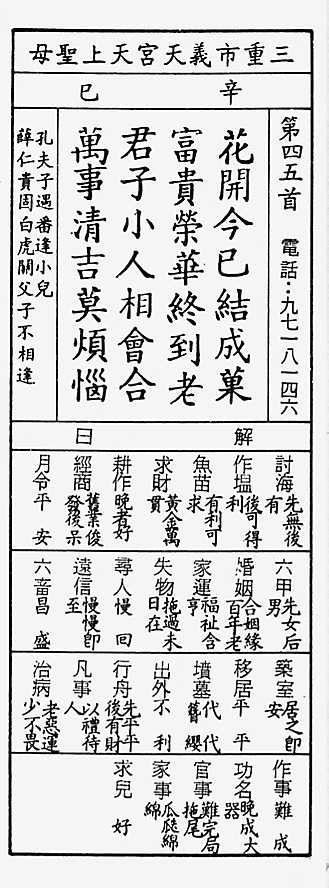 三重市義天宮天上聖母
辛巳
第四五首 電話：九七一八一四六
花開今已結成菓
富貴榮華終到老
君子小人相會合
萬事清吉莫煩惱
孔夫子遇番逢小兒
薛仁貴回白虎關父子不相逢
解曰
討海 先無後有
作塭 後可得利
魚苗 有利可求
求財 黃金萬貫
耕作 晚者好
經商 舊業俊發後呆
月令 平安
六甲 先女后男
婚姻 合姻緣百年老
家運 福祉含亨
失物 拖過未日在
尋人 慢回
遠信 慢慢即至
六畜 昌盛
築室 居之即安
移居 平平
墳墓 代代舊纓
出外 不利
行舟 先平平後有財
凡事 以禮待人
治病 老惡運少不畏
作事 難成
功名 晚成大器
官事 難完局拖尾
家事 瓜瓞綿綿
求兒 好